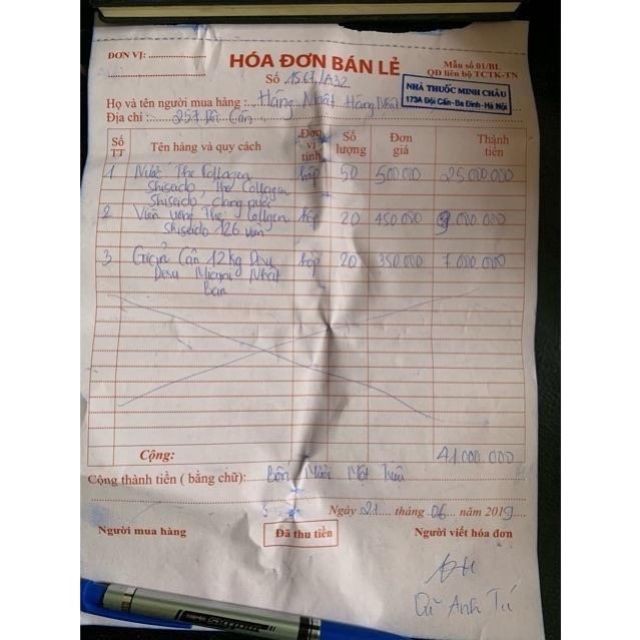 ĐƠN VỊ:
HÓA ĐƠN BÁN LẺ
Mẫu số 01/BL
QĐ liên bộ TCTK-TN
Số 1567/A32
NHÀ THUỐC MINH CHÂU
173A Đội Cấn - Ba Đình - Hà Nội
Họ và tên người mua hàng : Hằng Nhật Hằng Nhật
Địa chỉ : 257 Đội Cấn
Số TT Tên hàng và quy cách Đơn vị tính Số lượng Đơn giá Thành tiền
1 Nước The Collagen hộp 50 500000 25.000.000
Shiseido, The Collagen
Shiseido, dạng nước
2 Viên uống The Collgen hộp 20 450 000 9 000 000
Shiseido 126 viên
3 Giảm Cân 12kg hộp 20 350000 7 000 000
Minami Nhật
Bản
Cộng: 41 000.000
Cộng thành tiền ( bằng chữ): Bốn Mươi Mốt Triệu
Ngày 21 tháng 06 năm 2019
Người mua hàng Đã thu tiền Người viết hóa đơn
Anh Tú